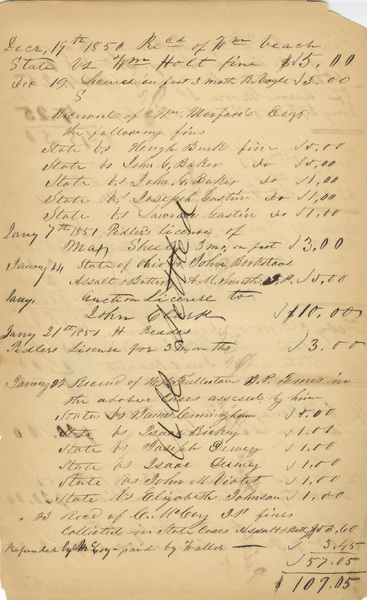 Decr, 19th 1850 Recd of Wm Veach
State vs Wm Holt fine $15,00
Dec 19 License on foot 3 month $3.00
Received of Wm Mosford Esqr
the following fines
State vs Hough Burk fine $5.00
State vs John C, Baker do $5.00
State vs John C, Baker do $1,00
State vs Joseph Gastin do $1,00
State vs Gastin do $1.00
Jany 7th 1851. Pedlers License of
Map 3 mo, on foot $3,00
Janury 14 State of Ohio vs John
Assalt & Battery A. M. Smith J. P. $5.00
Jany. auction License to
John Clark $10.00
Jany 21st 1851 H.
Pedlers License for 3 months $3.00
Janury 22 Recevd of Fulleston J. P. Fines in
the above cases assesed by him
State vs James Cunningham $5.00
State vs Isaac $1.00
State vs Joseph Dewey $1.00
State vs Isaac Dewey $1.00
State vs John M Violet $1.00
State vs Elizabeth Johnson $1.00
" 23 Recd of C. McCoy J P fines
Collected in State Cases Assalt & Batt
Refunded by McCoy - paid by Waller - $3.45
$57.05
$109.05